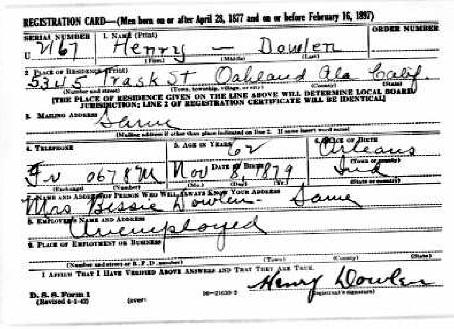 REGISTRATION CARD—(Men born on or after April 28, 1877 and on or before February 16, 1897)
SERIAL NUMBER 1. NAME (Print) ORDER NUMBER
U 2167 Henry — Dowlen
(First) (Middle) (Last)
2. PLACE OF RESIDENCE (Print)
5315 Trask St Oakland Ala Calif.
(Number and street) (Town, township, village, or city) (County) (State)
[THE PLACE OF RESIDENCE GIVEN ON THE LINE ABOVE WILL DETERMINE LOCAL BOARD
JURISDICTION; LINE 2 OF REGISTRATION CERTIFICATE WILL BE IDENTICAL]
3. MAILING ADDRESS
Same
[Mailing address if other than place indicated on line 2. If same insert word same]
4. TELEPHONE 5. AGE IN YEARS 6. PLACE OF BIRTH
62 Orleans
DATE OF BIRTH (Town or county)
Fr 0678M Nov 8, 1879 Ind
(Exchange) (Number) (Mo.) (Day) (Yr.) (State or country)
7. NAME AND ADDRESS OF PERSON WHO WILL ALWAYS KNOW YOUR ADDRESS
Mrs Bessie Dowlen - Same
8. EMPLOYER'S NAME AND ADDRESS
Unemployed
9. PLACE OF EMPLOYMENT OR BUSINESS
(Number and street or R. F. D. number) (Town) (County) (State)
I AFFIRM THAT I HAVE VERIFIED ABOVE ANSWERS AND THAT THEY ARE TRUE.
Henry Dowlen
D. S. S. Form 1 (Registrant's signature)
(Revised 4-1-42) (over) 16—21630-2